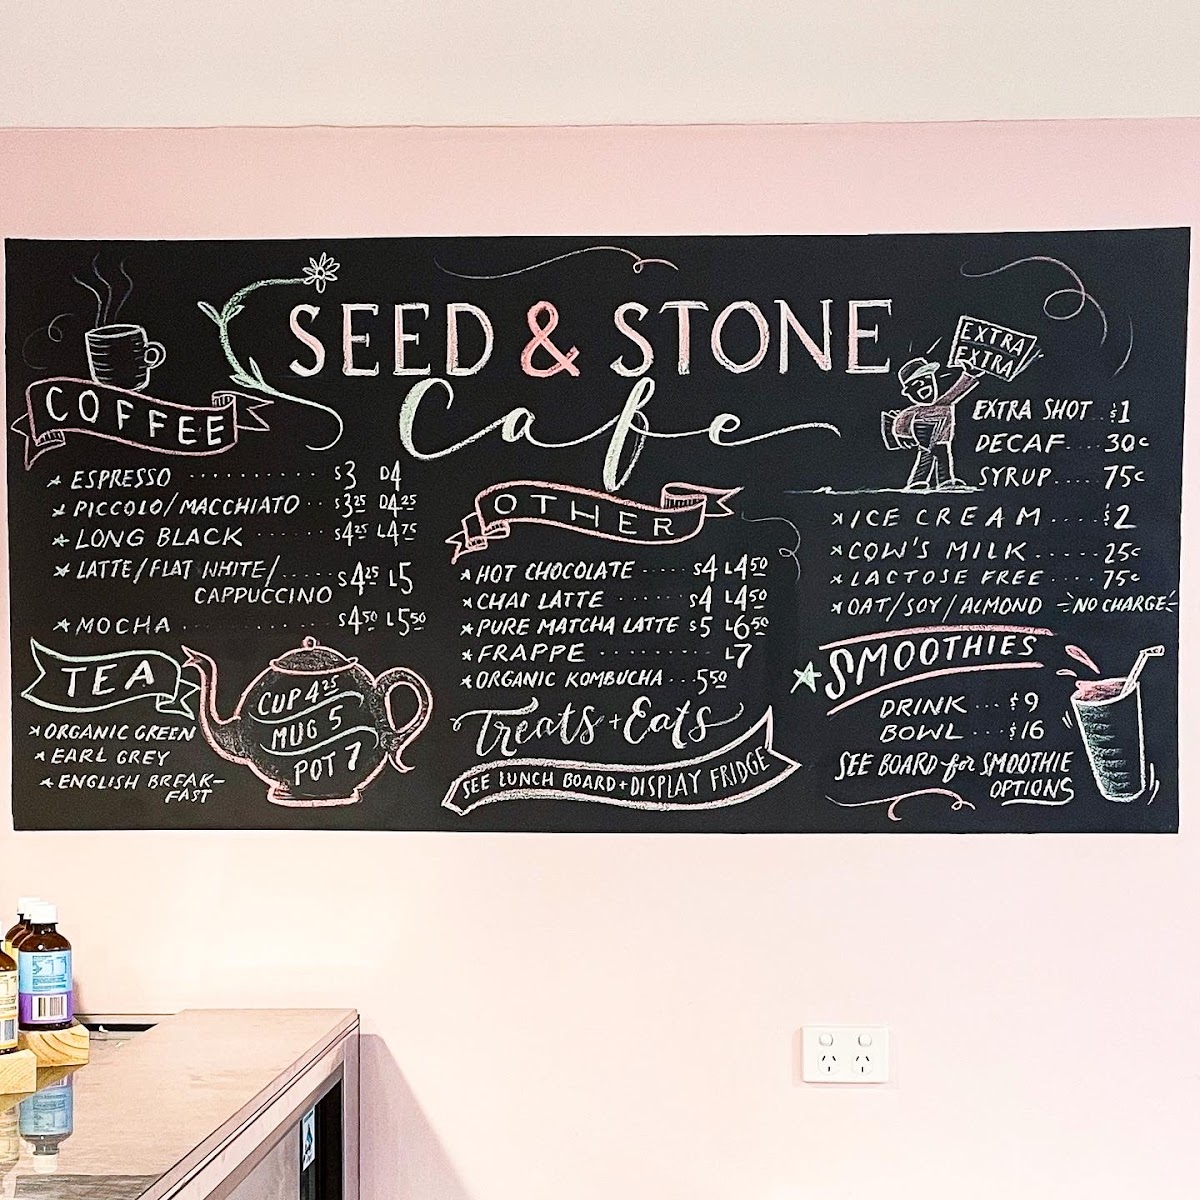 SEED & STONE
Cafe
COFFEE
ESPRESSO ........ S3 D4
PICCOLO/MACCHIATO .. S3.25 D4.25
LONG BLACK ........ S4.25 L4.75
LATTE/FLAT WHITE/ ..... S4.25 L5
CAPPUCCINO
MOCHA ............ S4.50 L5.50
TEA
ORGANIC GREEN
EARL GREY
ENGLISH BREAK-
FAST
CUP 4.25
MUG 5
POT 7
OTHER
HOT CHOCOLATE ..... S4 L4.50
CHAI LATTE ........ S4 L4.50
PURE MATCHA LATTE S5 L6.50
FRAPPE ......... L7
ORGANIC KOMBUCHA ... 5.50
Treats + Eats
SEE LUNCH BOARD + DISPLAY FRIDGE
EXTRA
EXTRA
EXTRA SHOT .. $1
DECAF .... 30c
SYRUP ..... 75c
ICE CREAM .... $2
COW'S MILK ...... 25c
LACTOSE FREE .... 75c
OAT/SOY/ALMOND -NO CHARGE-
SMOOTHIES
DRINK ... $9
BOWL ... $16
SEE BOARD for SMOOTHIE
OPTIONS